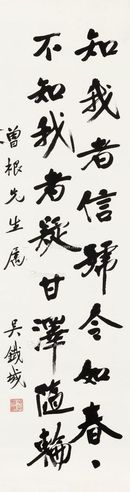 知我者信號令如春、
不知我者疑甘澤隨輪
曾根先生屬
吳鐵城